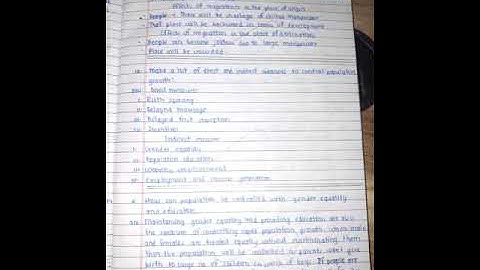 Effects of migrations in the place of origin
People → There will be shortage of active manpower
That place will be backward in terms of development
Effect of migration in the place of destination
People can become jobless due to large manpower
Place will be crowded
Make a list of direct and indirect measures to control population
growth?
Direct measures
Birth spacing
Delayed marriage
Delayed first conception
Indirect measure
Gender equality
Population education
Women empowerment
Employment and income generation
How can population be controlled with gender equality
and education
Maintaining gender equality and providing education are two
the measures of controlling rapid population growth. When males
and females are treated equally without discriminating them
then the population will be controlled as parents won't give
birth to large no of children in search of boys. If people are